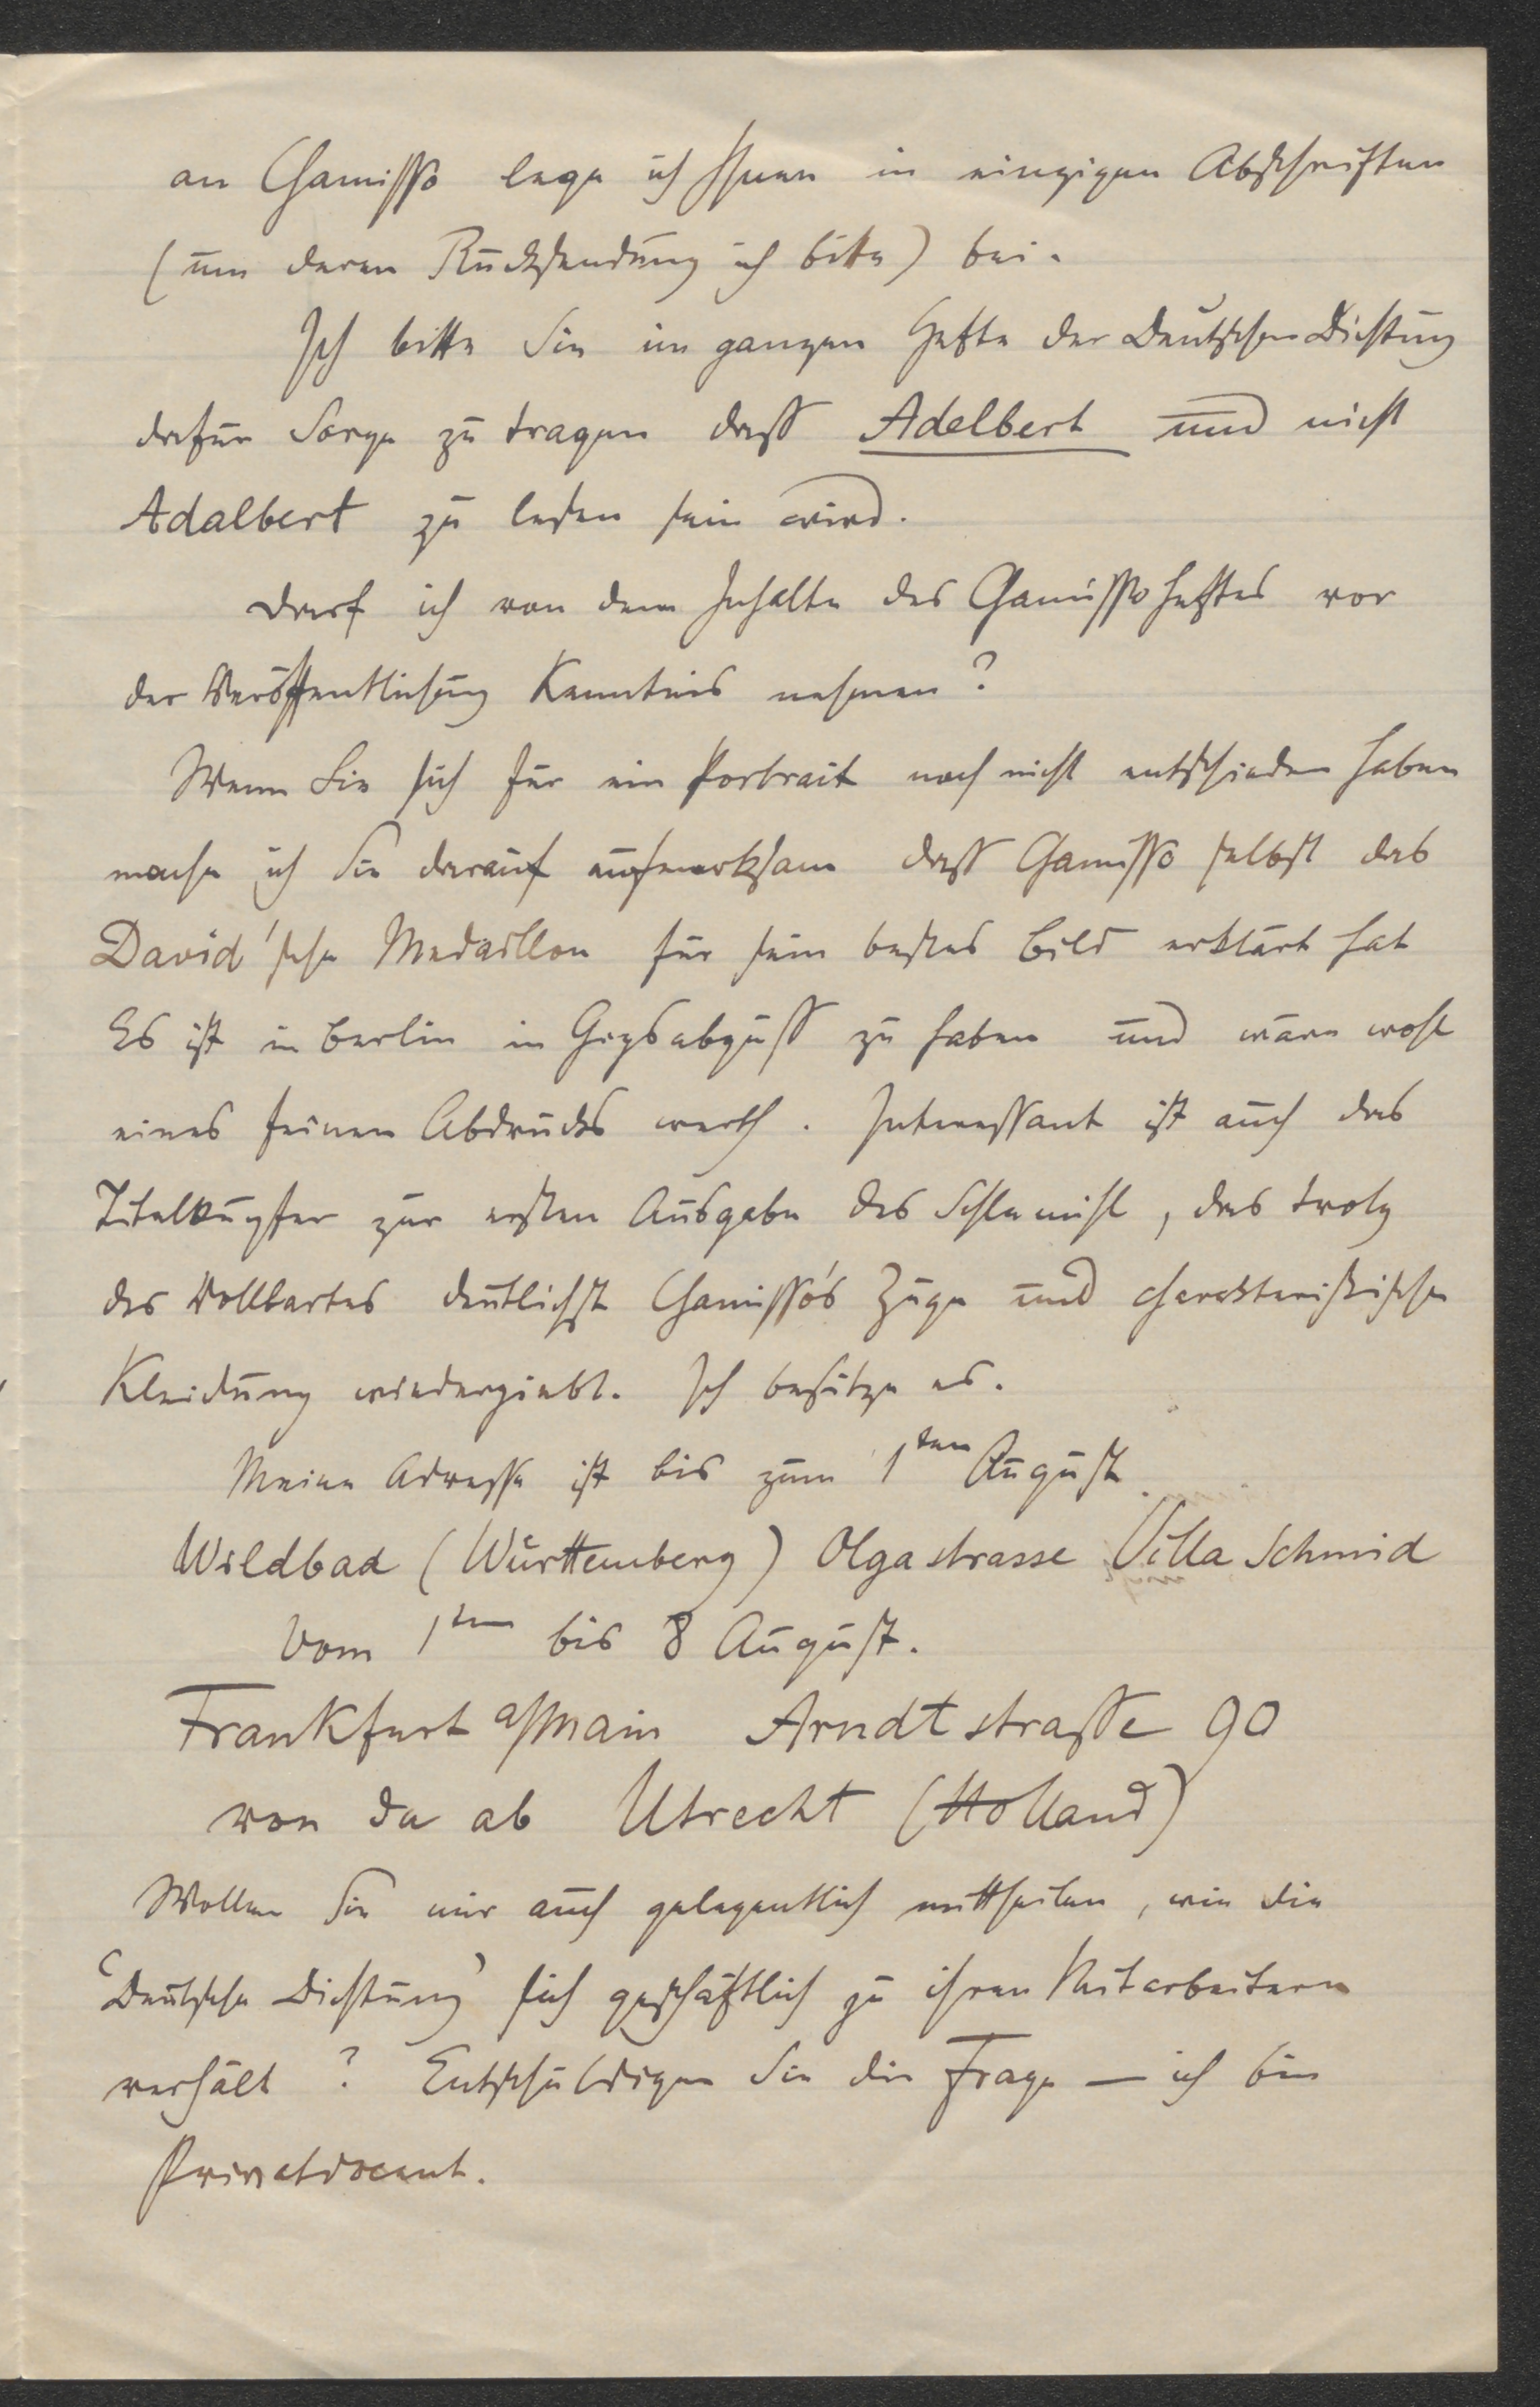 an Chamisso lege ich Ihnen in einzigen Abschriften
(um deren Rücksendung ich bitte) bei.
Ich bitte Sie im ganzen Hefte der Deutschen Dichtung
dafür Sorge zu tragen dass Adelbert und nicht
Adalbert zu lesen sein wird.
Darf ich von dem Inhalte des Chamissoheftes vor
der Veröffentlichung Kenntnis nehmen?
Wenn Sie sich für ein Portrait noch nicht entschieden haben
mache ich Sie darauf aufmerksam dass Chamisso selbst das
David'sche Medaillon für sein bestes Bild erklärt hat
Es ist in Berlin in Gypsabguss zu haben und wäre wohl
eines feinen Abdrucks werth. Interessant ist auch das
Titelkupfer zur ersten Ausgabe des Schlemihl, das trotz
des Vollbartes deutlichst Chamisso's Züge und charakteristische
Kleidung wiedergiebt. Ich besitze es.
Meine Adresse ist bis zum 1ten August
Wildbad (Württemberg) Olgastrasse Villa Schmid
Vom 1ten bis 8 August.
Frankfurt a/Main Arndtstrasse 90
von da ab Utrecht (Holland)
Wollen Sie mir auch gelegentlich mittheilen, wie die
'Deutsche Dichtung' sich geschäftlich zu ihren Mitarbeitern
verhält? Entschuldigen Sie die Frage — ich bin
Privatdocent.